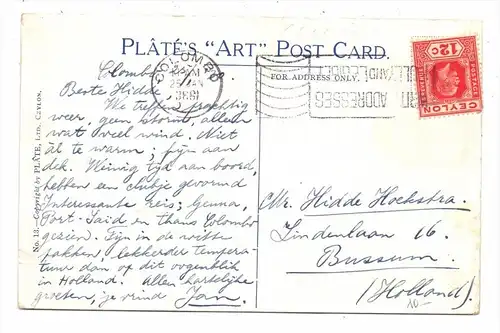 PLÂTÉ'S "ART" POST CARD.
FOR ADDRESS ONLY.
No. 13. Copyright by PLÂTÉ, LTD., CEYLON.
COLOMBO
CEYLON
12C
ADDRESSES
Colombo
Beste Hidde
We treffen prachtig
weer, geen storm, alleen
wat veel wind. Niet
àl te warm; fijn aan
dek. Weinig tijd aan boord,
hebben een clubje gevormd
Interessante reis; Genua,
Port-Said en thans Colombo
gezien. Fijn in de witte
pakken lekkerder tempera-
tuur dan op dit oogenblik
in Holland. Allen hartelijke
groeten, je vriend Jan.
Mr. Hidde Hoekstra.
Lindenlaan 16.
Bussum.
(Holland).
10-